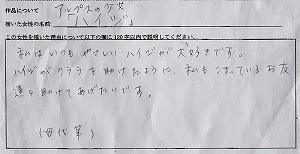 作品について
描いた女性の名前
アルプスの少女
ハイジ
この女性を描いた理由について以下の欄に120字以内で説明してください。
私はいつもやさしいハイジが大好きです。
ハイジがクララを助けたように、私もこまっているお友
達を助けてあげたいです。
(母代筆)